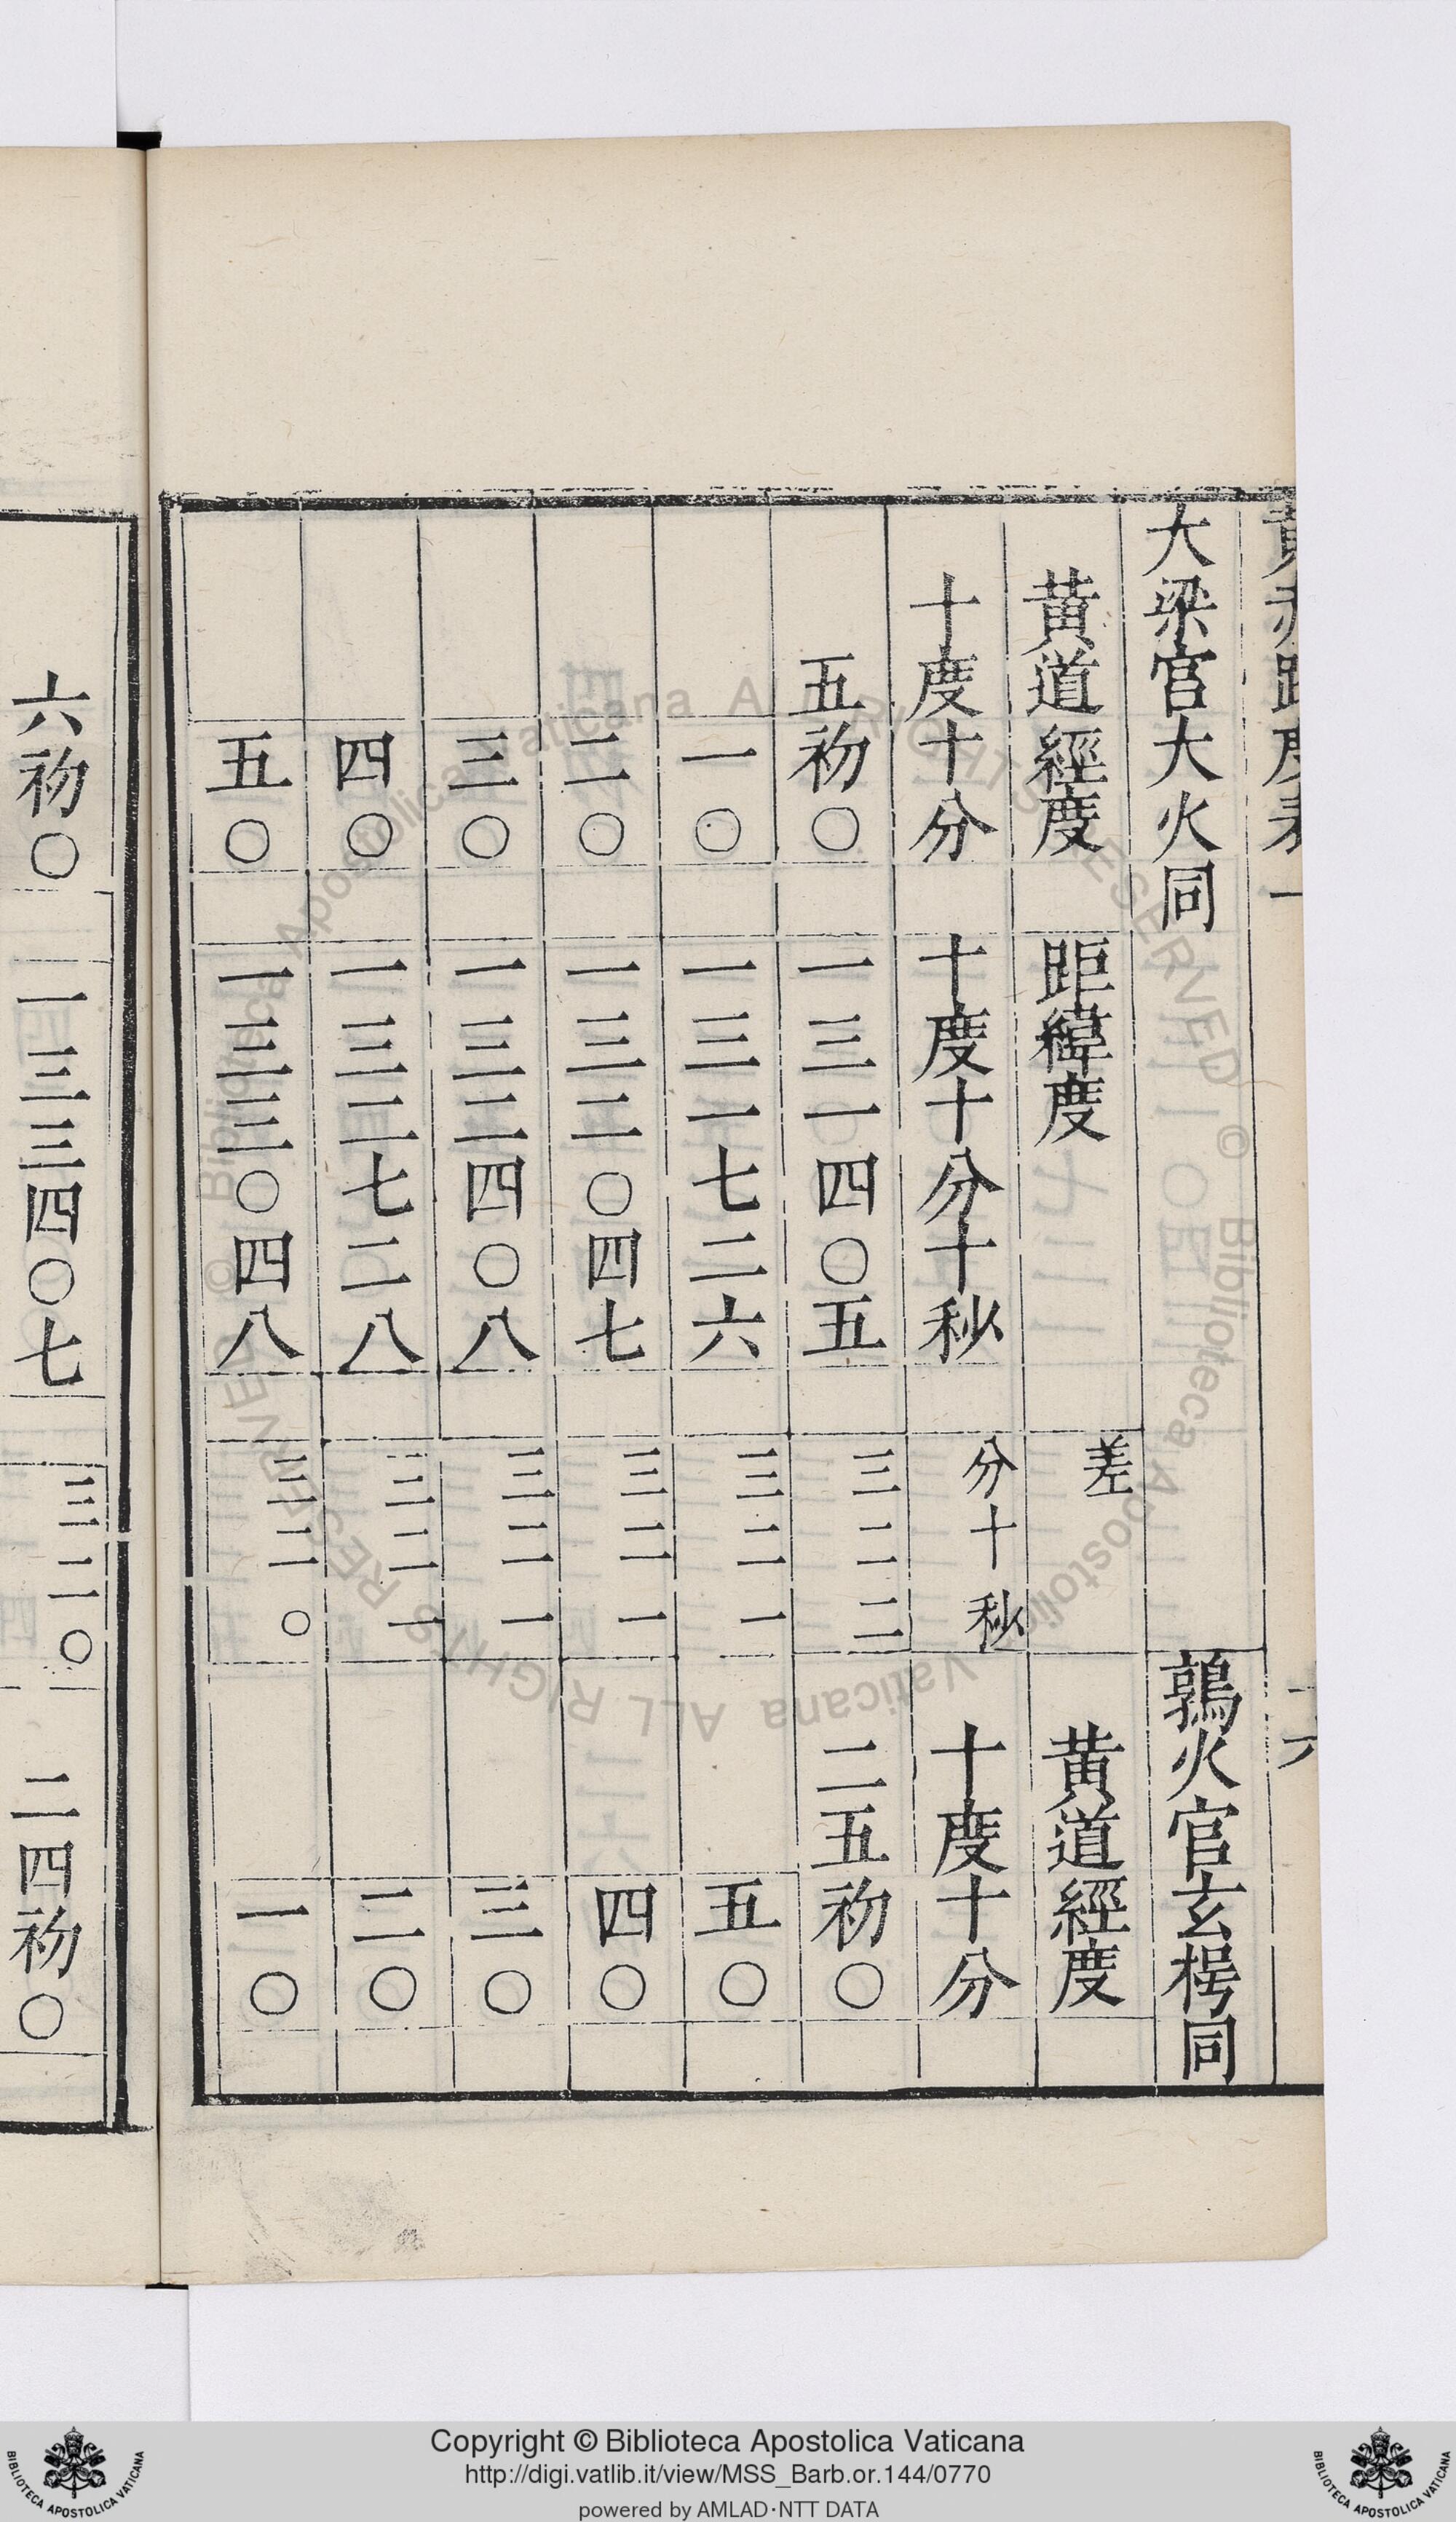 黃赤距度表一
大梁官大火同 鶉火官玄枵同
黃道經度 距緯度 差 黃道經度
十度十分 十度十分十秒 分十秒 十度十分
五初〇 一三一四〇五 三二二 二五初〇
一〇 一三一七二六 三二一 五〇
二〇 一三二〇四七 三二一 四〇
三〇 一三二四〇八 三二一 三〇
四〇 一三二七二八 三二一 二〇
五〇 一三三〇四八 三二〇 一〇
六初〇 一三三四〇七 三二〇 二四初〇
© Biblioteca Apostolica Vaticana ALL RIGHTS RESERVED © Biblioteca Apostolica Vaticana ALL RIGHTS RESERVED
Copyright © Biblioteca Apostolica Vaticana
http://digi.vatlib.it/view/MSS_Barb.or.144/0770
powered by AMLAD·NTT DATA
BIBLIOTECA APOSTOLICA VATICANA
BIBLIOTECA APOSTOLICA VATICANA